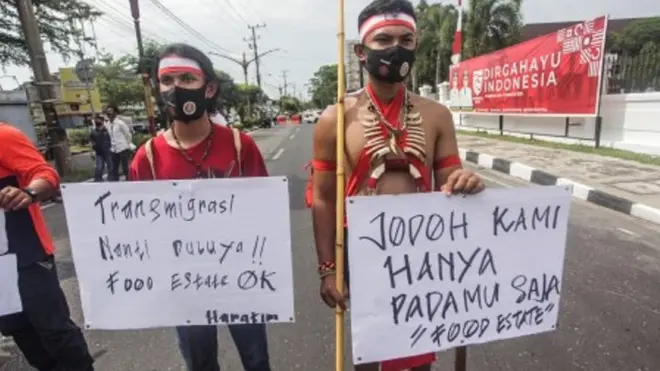 DIRGAHAYU
INDONESIA
Transmigrasi
Nanti Duluya !!
Food Estate OK
Haratim
JODOH KAMI
HANYA
PADAMU SAJA
"FOOD ESTATE"